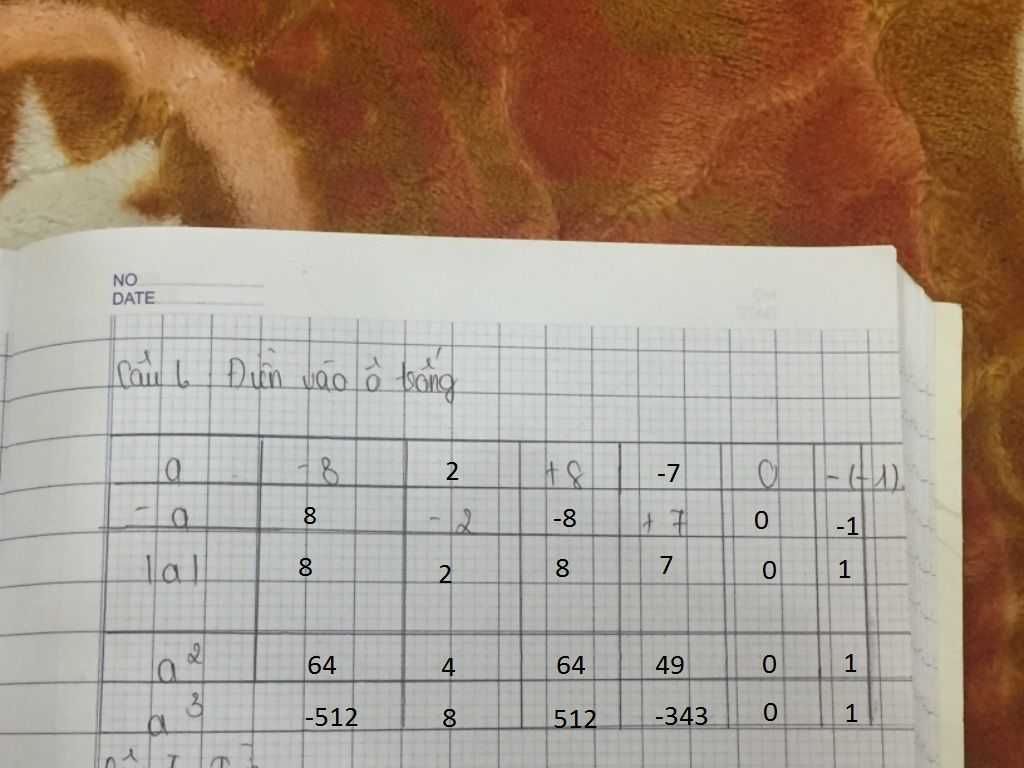 NO
DATE
Câu 6 Điền vào ô trống
a -8 2 +8 -7 0 -(-1)
-a 8 -2 -8 +7 0 -1
|a| 8 2 8 7 0 1
a² 64 4 64 49 0 1
a³ -512 8 512 -343 0 1